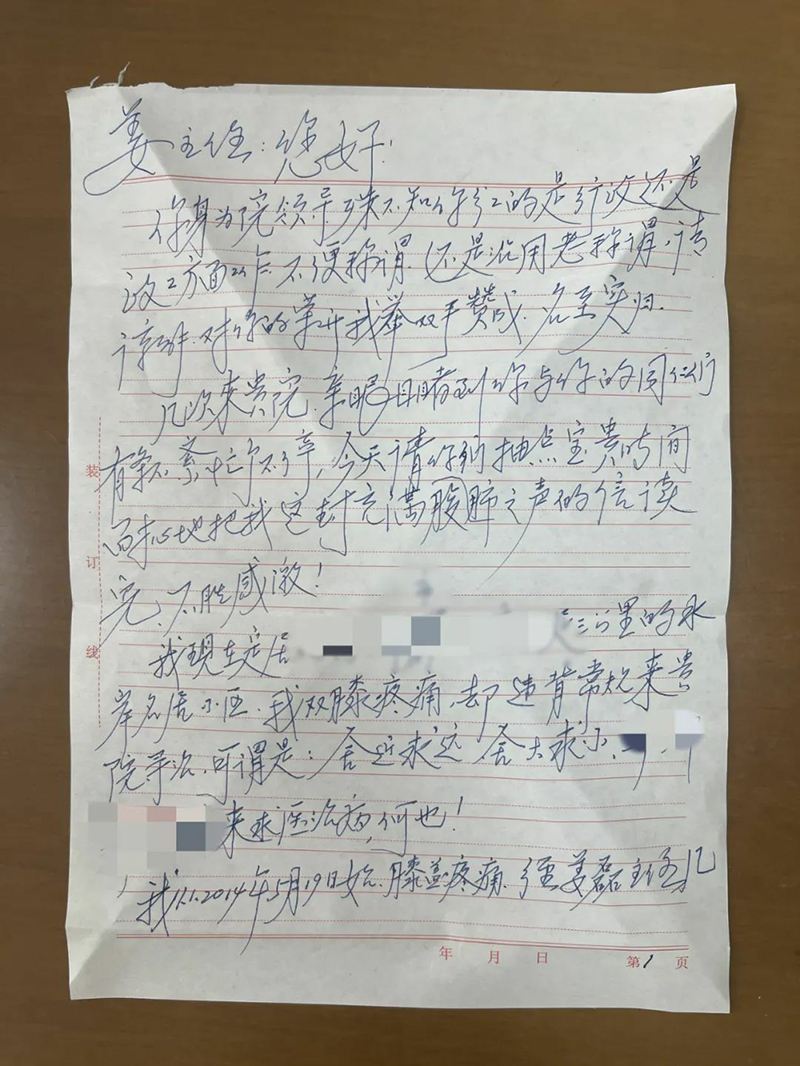 姜主任:您好!
你身为院领导 殊不知你分工的是行政还是
政工方面工作 不便称谓 还是沿用老称谓,请
谅解.对你的荣升我举双手赞成.名至实归.
几次来贵院 亲眼目睹到你与你的同仁们
有条不紊 忙个不停,今天请你们抽点宝贵时间
耐心地把我这封充满腹肺之声的信读
完,不胜感激!
我现在定居
三公里的水
岸名居小区.我双膝疼痛,却违背常规来贵
院寻治,可谓是:舍近求远 舍大求小、
来求医治病,何也!
我 2014年5月19日始 膝盖疼痛 经姜磊主任几
装
订
线
年 月 日 第1页